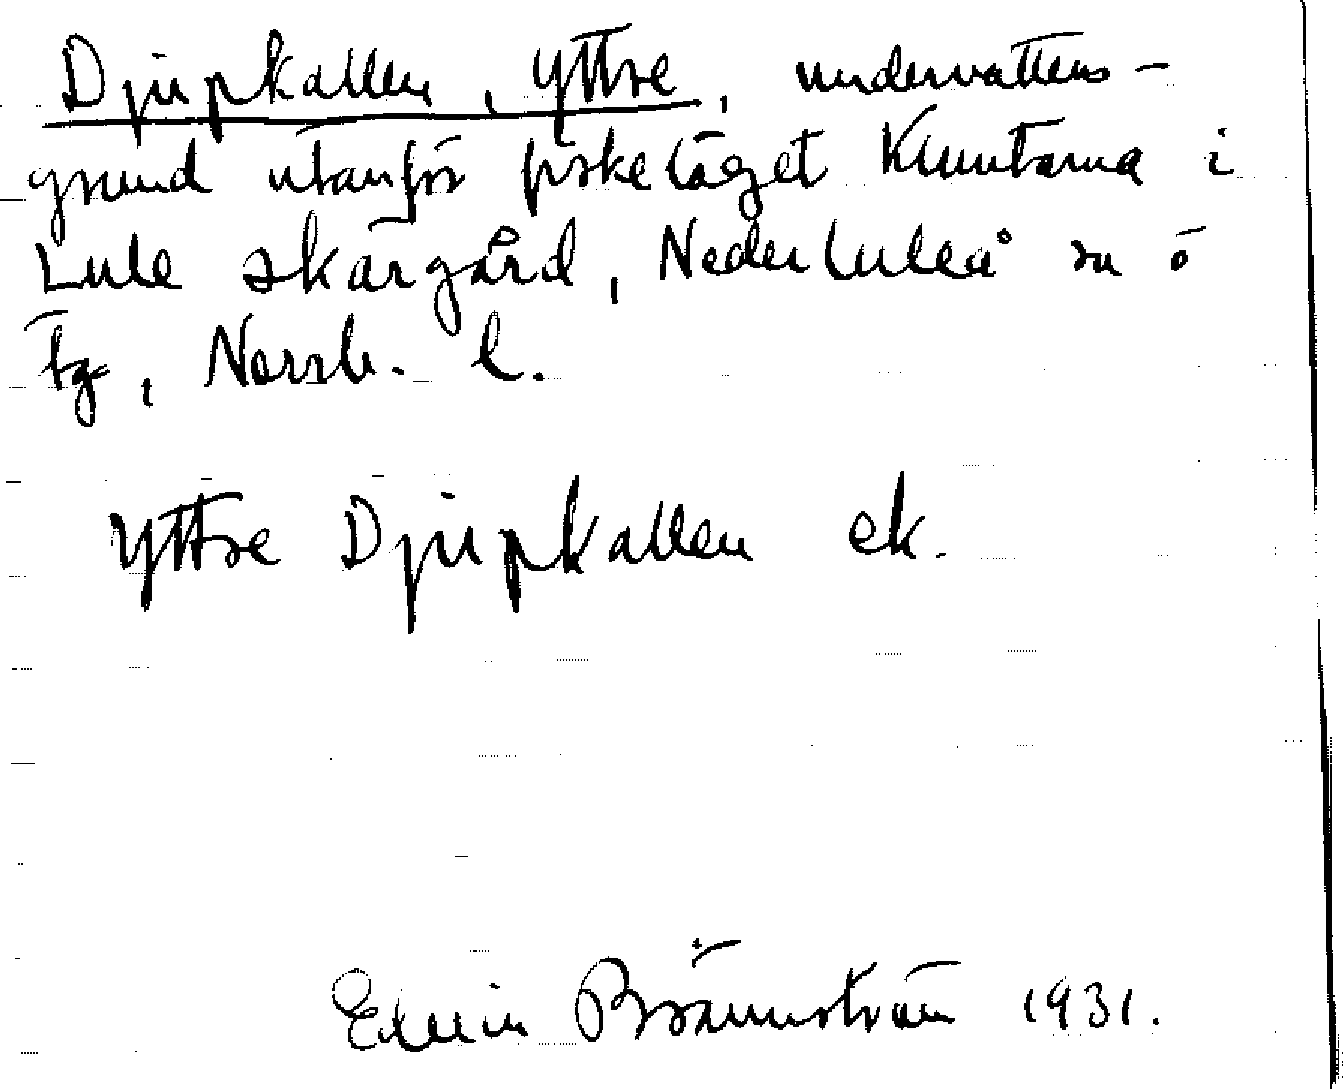 Djupkallen, Yttre, undervattens-
grund utanför fiskeläget Kluntarna i
Lule skärgård, Nederluleå sn o
tg, Norrb. l.
Yttre Djupkallen ek.
Edvin Brännström 1931.